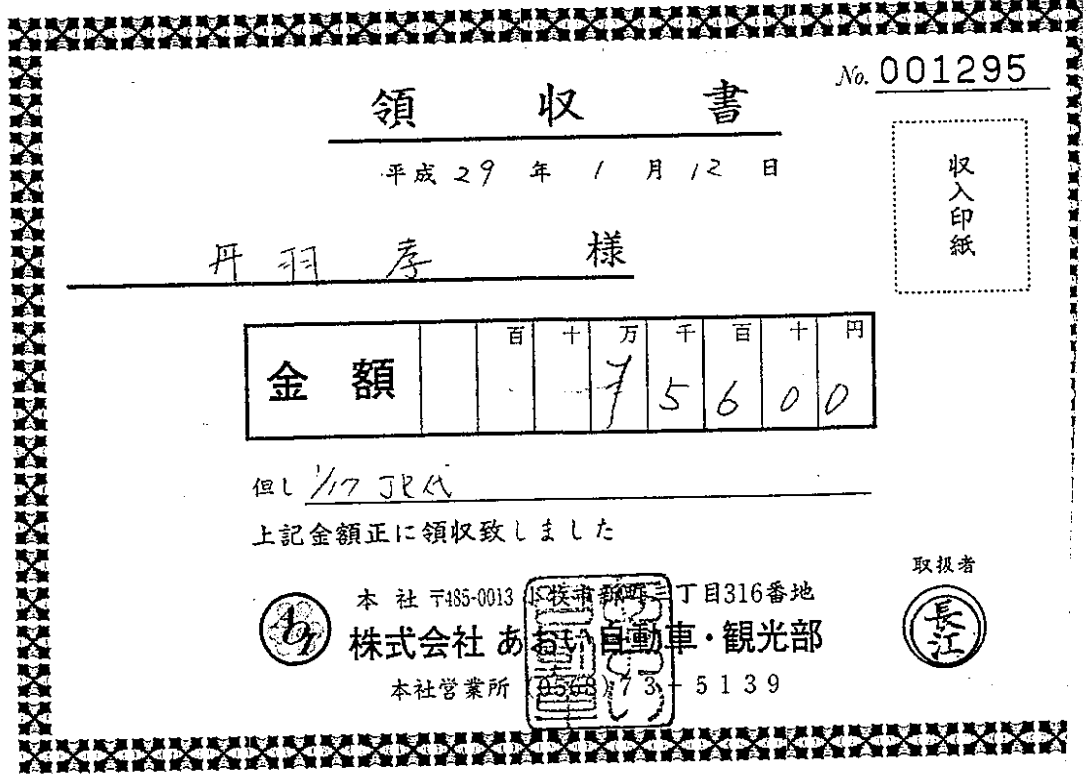 No. 001295
領収書
収入印紙
平成 29 年 1 月 12 日
丹羽 孝 様
金額 百 十 万 千 百 十 円
¥ 5 6 0 0
但し 1/17 JR代
上記金額正に領収致しました
取扱者
長江
本社 〒485-0013 小牧市新町三丁目316番地
AOI 株式会社 あおい自動車・観光部
本社営業所 (0568)73-5139